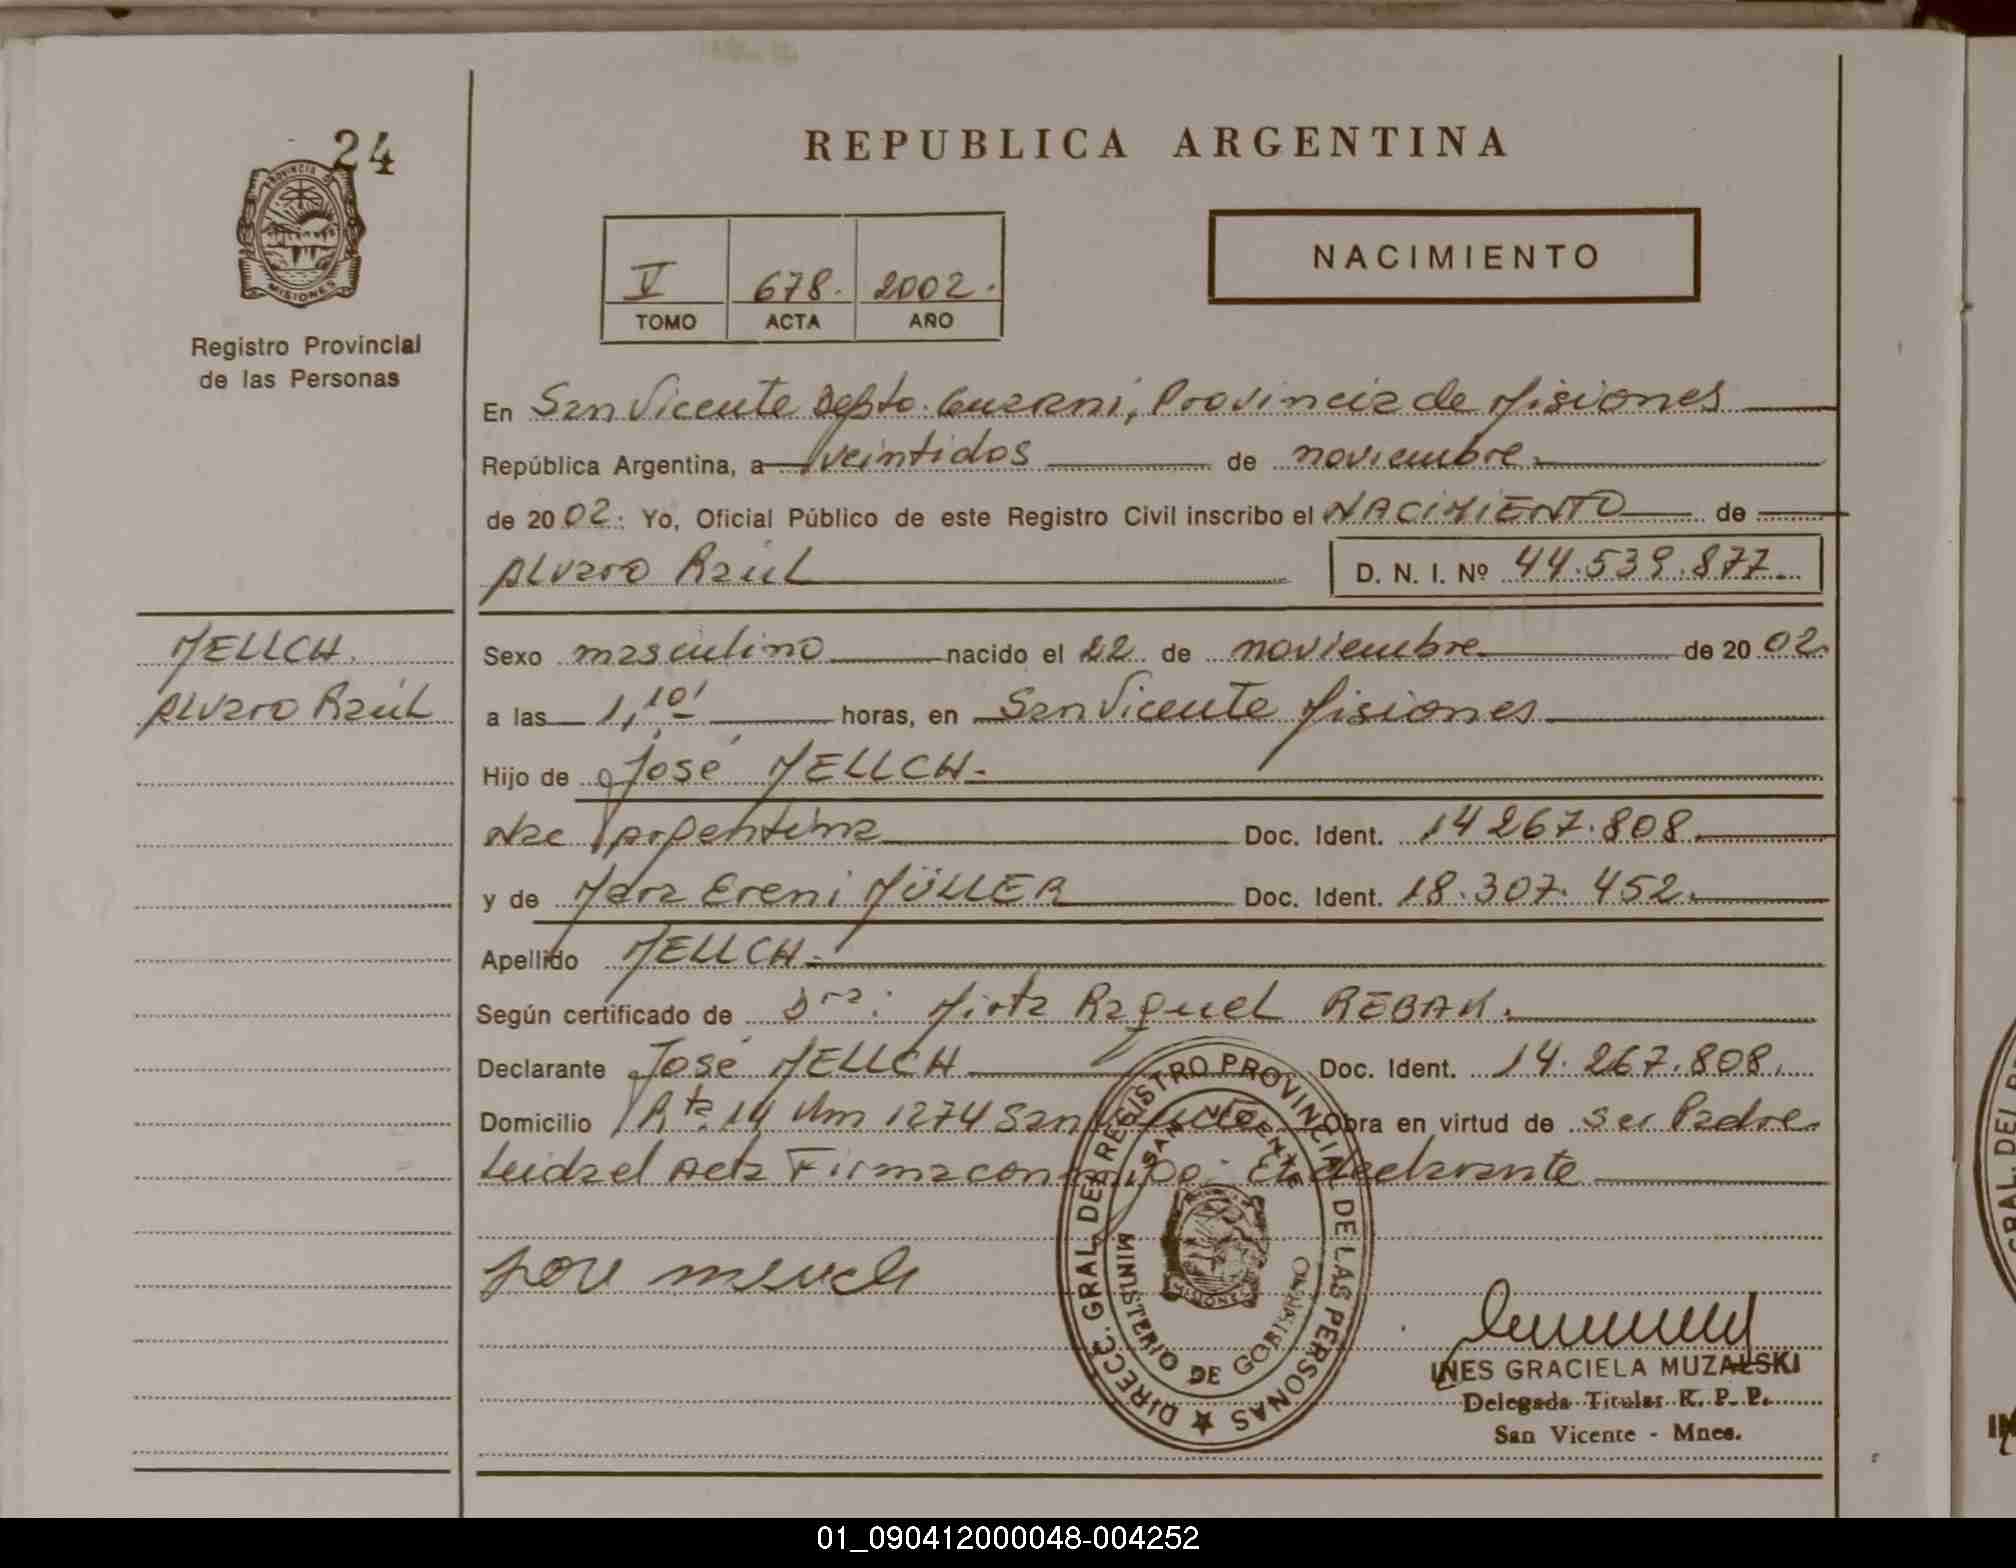 24
PROVINCIA DE
MISIONES
Registro Provincial
de las Personas
REPUBLICA ARGENTINA
V 678. 2002.
TOMO ACTA AÑO
NACIMIENTO
En San Vicente Depto. Guarani, Provincia de Misiones
República Argentina, a veintidos de noviembre
de 2002. Yo, Oficial Público de este Registro Civil inscribo el NACIMIENTO de
Alvaro Raúl D. N. I. Nº 44.539.877
MELLCH.
Alvaro Raúl
Sexo masculino nacido el 22 de noviembre de 2002.
a las 1,10' horas, en San Vicente Misiones
Hijo de José MELLCH.
Nac Argentina Doc. Ident. 14267.808.
y de Mara Ereni MÜLLER Doc. Ident. 18.307.452.
Apellido MELLCH.
Según certificado de Dra: Mirta Raquel REBAK.
Declarante José MELLCH Doc. Ident. 14.267.808.
Domicilio Rta. 14 Km 1274 San Vicente Obra en virtud de ser Padre.
Leida el Acta Firma conmigo: El declarante
DIRECC. GRAL. DEL REGISTRO PROVINCIAL DE LAS PERSONAS
SAN VICENTE
MINISTERIO DE GOBIERNO
MISIONES
INES GRACIELA MUZALSKI
Delegada Titular R. P. P.
San Vicente - Mnes.
01_090412000048-004252